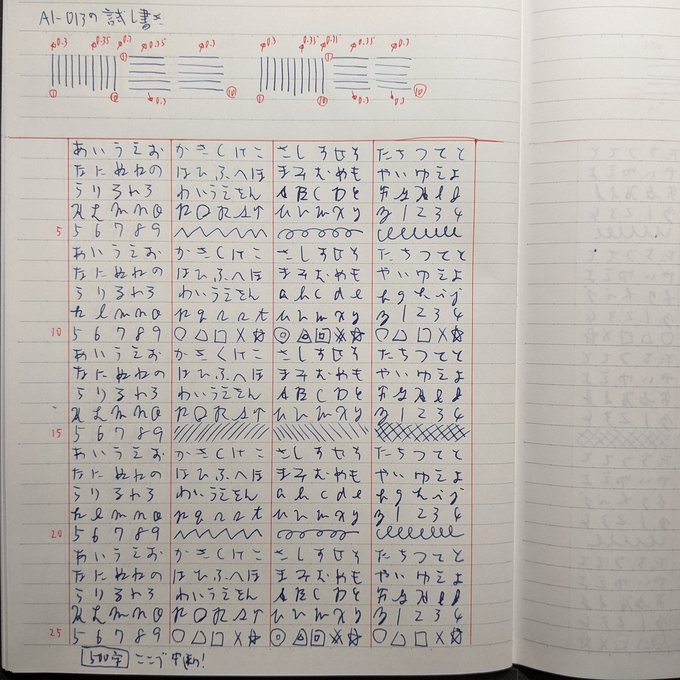 AI-013の試し書き
φ0.3 φ0.35 φ0.3 φ0.35 φ0.3 φ0.3 φ0.35 φ0.3 φ0.35 φ0.3
① ①
① ⑩ φ0.3 ⑩ ① ⑩ φ0.3 ⑩
あいうえお かきくけこ さしすせそ たちつてと
なにぬねの はひふへほ まみむめも やいゆえよ
らりるれろ わいうえをん A B C D E F G H I J
K L M N O P Q R S T U V W X Y Z 1 2 3 4
5 5 6 7 8 9
あいうえお かきくけこ さしすせそ たちつてと
なにぬねの はひふへほ まみむめも やいゆえよ
らりるれろ わいうえをん a b c d e f g h i j
k l m n o p q r s t u v w x y z 1 2 3 4
10 5 6 7 8 9 ○△□×☆
あいうえお かきくけこ さしすせそ たちつてと
なにぬねの はひふへほ まみむめも やいゆえよ
らりるれろ わいうえをん A B C D E F G H I J
K L M N O P Q R S T U V W X Y Z 1 2 3 4
15 5 6 7 8 9
あいうえお かきくけこ さしすせそ たちつてと
なにぬねの はひふへほ まみむめも やいゆえよ
らりるれろ わいうえをん a b c d e f g h i j
k l m n o p q r s t u v w x y z 1 2 3 4
20 5 6 7 8 9
あいうえお かきくけこ さしすせそ たちつてと
なにぬねの はひふへほ まみむめも やいゆえよ
らりるれろ わいうえをん A B C D E F G H I J
K L M N O P Q R S T U V W X Y Z 1 2 3 4
25 5 6 7 8 9 ○△□×☆
500字 ここで